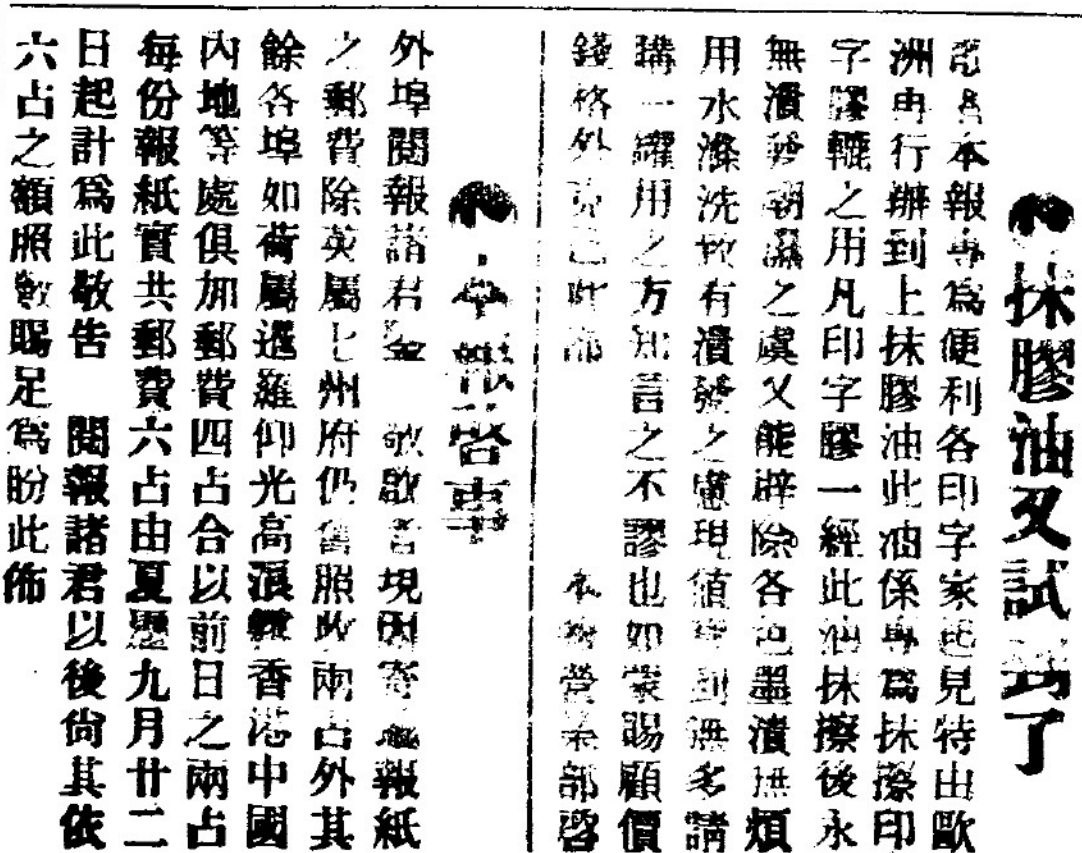 抹膠油又試到了
本報專為便利各印字家起見特由歐
洲再行辦到上抹膠油此油係專為抹擦印
字膠轆之用凡印字膠一經此油抹擦後永
無潰發潮濕之虞又能辟除各色墨漬無煩
用水滌洗致有潰發之慮現值寄到無多請
購一罐用之方知言之不謬也如蒙賜顧價
錢格外克己此部
本報營業部啓
本報啓事
外埠閱報諸君鑒 敬啟者現因寄遞報紙
之郵費除英屬七州府仍舊照收兩占外其
餘各埠如荷屬暹羅仰光高滇香港中國
內地等處俱加郵費四占合以前日之兩占
每份報紙實共郵費六占由夏曆九月廿二
日起計爲此敬告 閱報諸君以後尙其依
六占之額照數賜足爲盼此佈